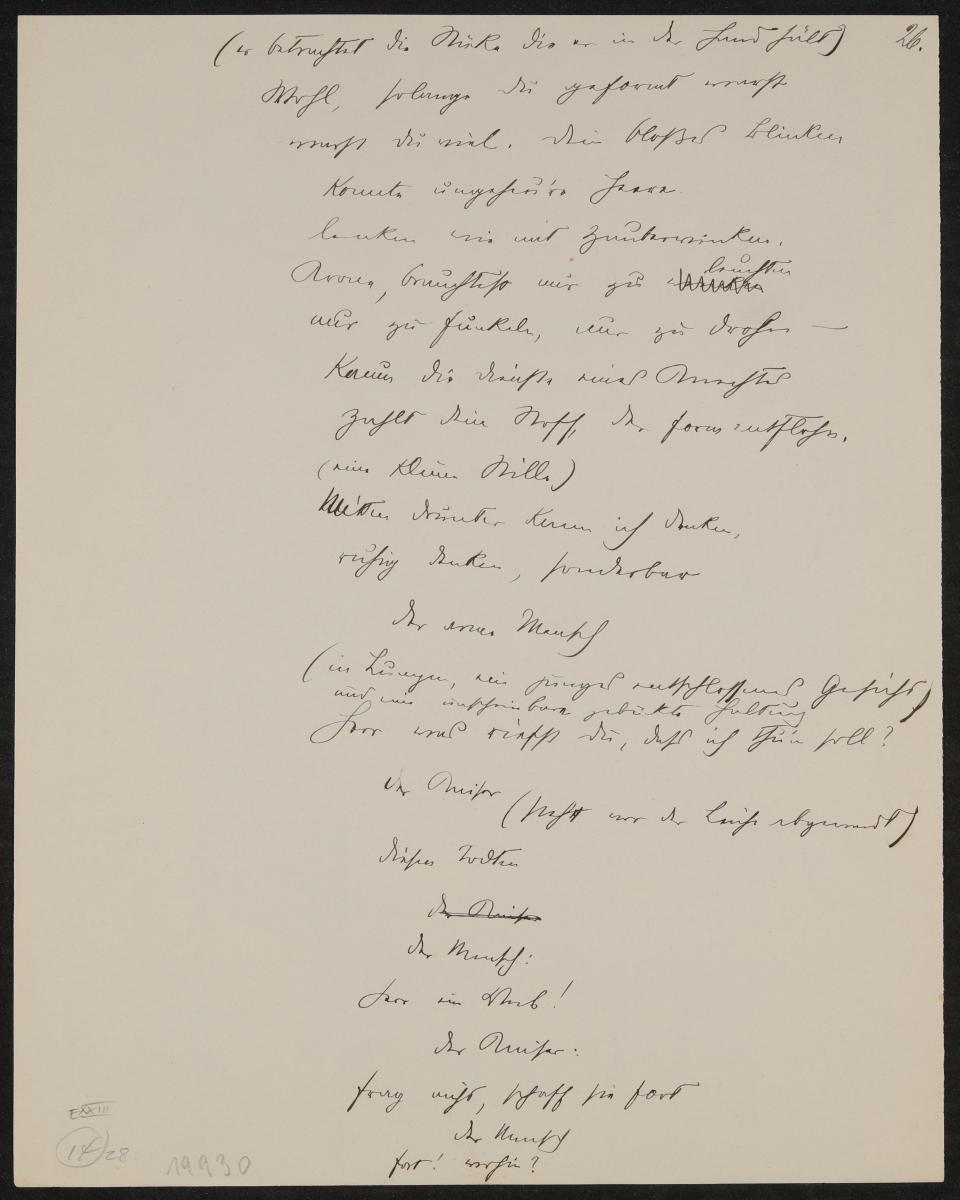 26.
(er betrachtet die Stücke die er in der Hand hält)
Wohl, solange du geformt warst
warst du viel. Dein bloßes Blinken
konnte ungeheure Heere
lenken wie mit Zauberwinken.
Krone, brauchtest nur zu leuchten
nur zu funkeln, nur zu drohen —
Kaum die Dienste eines Knechtes
zahlt dein Stoff, der Form entflohn.
(eine kleine Stille)
Mitten drunter kann ich denken,
ruhig denken, sonderbar
der arme Mensch
(in Lumpen, ein junges entschlossenes Gesicht
und eine unscheinbare gebückte Haltung)
Herr was rufst du, daß ich thun soll?
der Kaiser
(steht von der Leiche abgewandt)
diesen Todten
der Kaiser
der Mensch:
Herr ein Weib!
der Kaiser:
frag nicht, schaff sie fort
der Mensch
fort! wohin?
EXXIII
14/28
19930